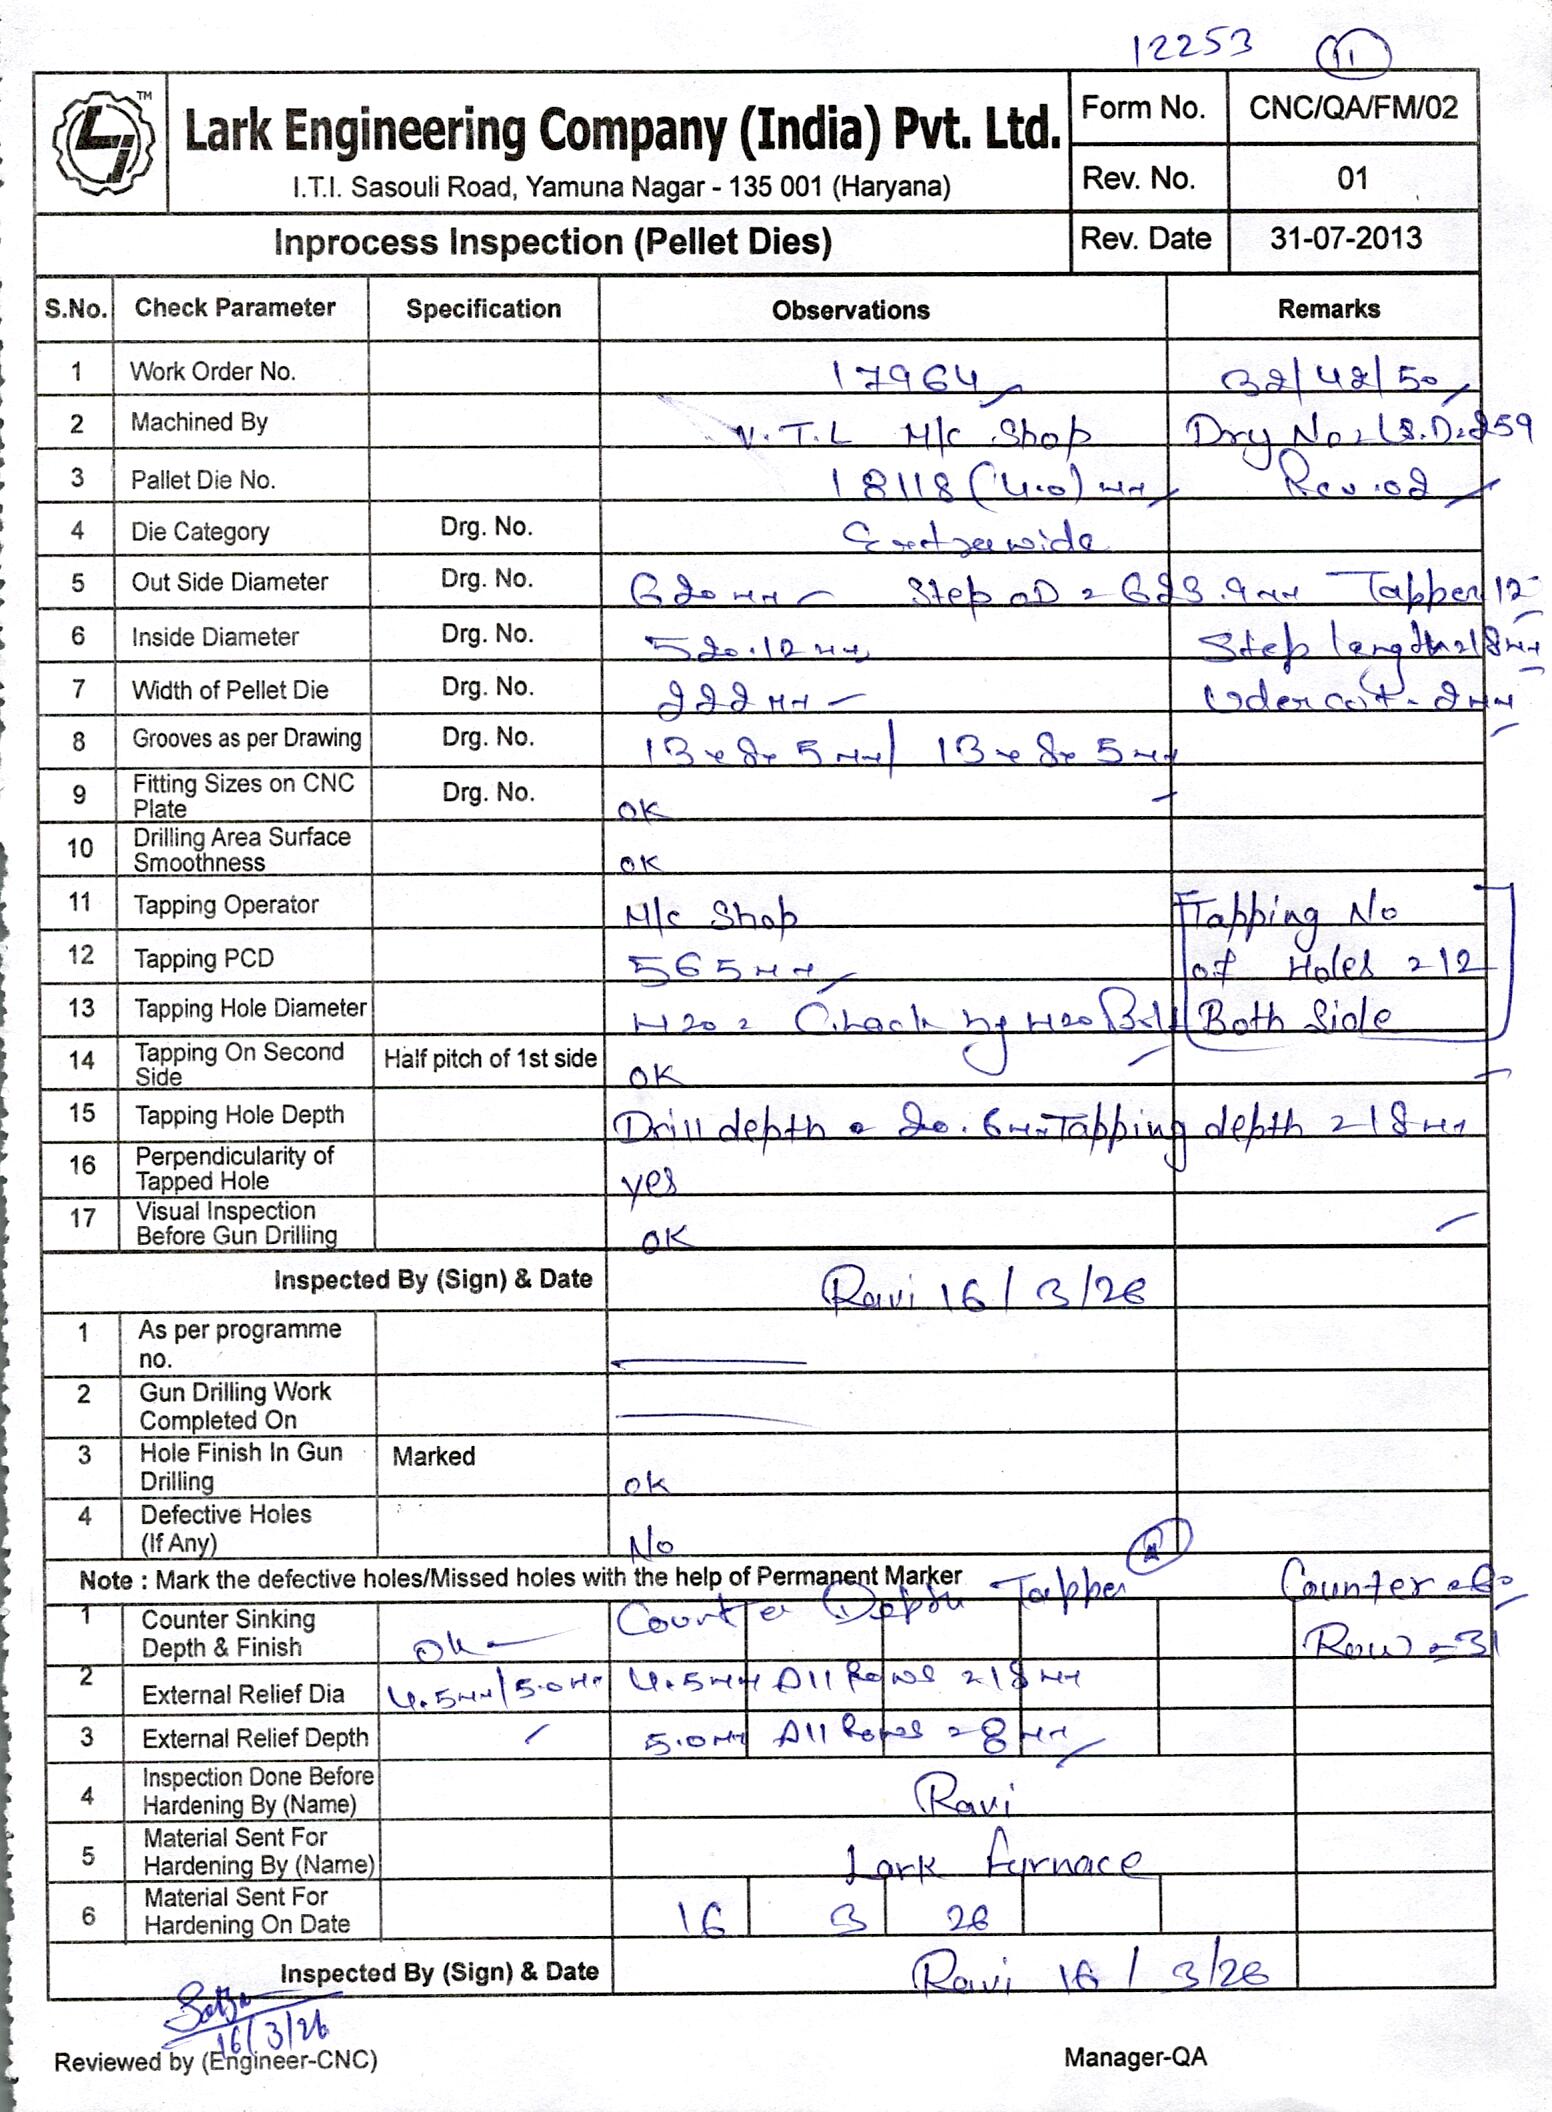 12253 11
TM
Lark Engineering Company (India) Pvt. Ltd.
I.T.I. Sasouli Road, Yamuna Nagar - 135 001 (Haryana)
Form No. CNC/QA/FM/02
Rev. No. 01
Inprocess Inspection (Pellet Dies) Rev. Date 31-07-2013
S.No. Check Parameter Specification Observations Remarks
1 Work Order No. 17964 32/42/50
2 Machined By V.T.L M/c Shop Drg No = L.S.D. 259
3 Pallet Die No. 18118 (4.0) mm Rev. 02
4 Die Category Drg. No. wide
5 Out Side Diameter Drg. No. 620 mm Step OD = 623.9 mm Tapper 12
6 Inside Diameter Drg. No. 520.12 mm Step length = 18 mm
7 Width of Pellet Die Drg. No. 222 mm Udercut - 2 mm
8 Grooves as per Drawing Drg. No. 13 x 8 x 5 mm / 13 x 8 x 5 mm
9 Fitting Sizes on CNC Plate Drg. No. OK
10 Drilling Area Surface Smoothness OK
11 Tapping Operator M/c Shop Tapping No
12 Tapping PCD 565 mm of Holes = 12
13 Tapping Hole Diameter M20 = Check by M20 Bolt Both Side
14 Tapping On Second Side Half pitch of 1st side OK
15 Tapping Hole Depth Drill depth = 20.6 mm Tapping depth = 18 mm
16 Perpendicularity of Tapped Hole yes
17 Visual Inspection Before Gun Drilling OK
Inspected By (Sign) & Date Ravi 16/3/26
1 As per programme no.
2 Gun Drilling Work Completed On
3 Hole Finish In Gun Drilling Marked ok
4 Defective Holes (If Any) No
Note : Mark the defective holes/Missed holes with the help of Permanent Marker
1 Counter Sinking Depth & Finish Ok Counter Depth Tapper Counter = 60
Row = 31
2 External Relief Dia 4.5 mm/5.0 mm 4.5 mm All Rows = 18 mm
3 External Relief Depth 5.0 mm All Rows = 8 mm
4 Inspection Done Before Hardening By (Name) Ravi
5 Material Sent For Hardening By (Name) Lark furnace
6 Material Sent For Hardening On Date 16 3 26
Inspected By (Sign) & Date Ravi 16/3/26
16/3/26
Reviewed by (Engineer-CNC) Manager-QA